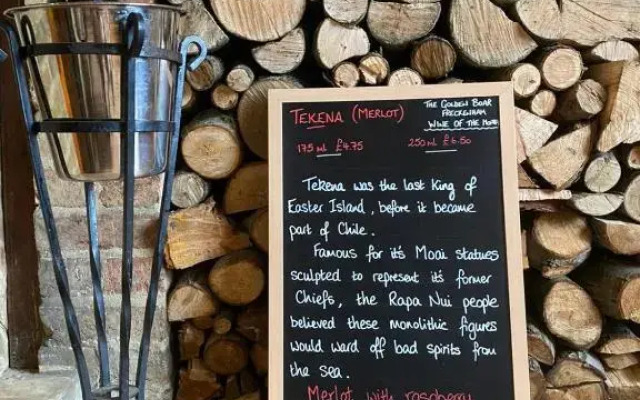 TEKENA (MERLOT)
THE GOLDEN BOAR
FRECKENHAM
WINE OF THE MONTH
175 ML £4.75
250 ML £6.50
Tekena was the last king of
Easter Island, before it became
part of Chile.
Famous for it's Moai statues
sculpted to represent it's former
Chiefs, the Rapa Nui people
believed these monolithic figures
would ward off bad spirits from
the sea.
Merlot with raspberry